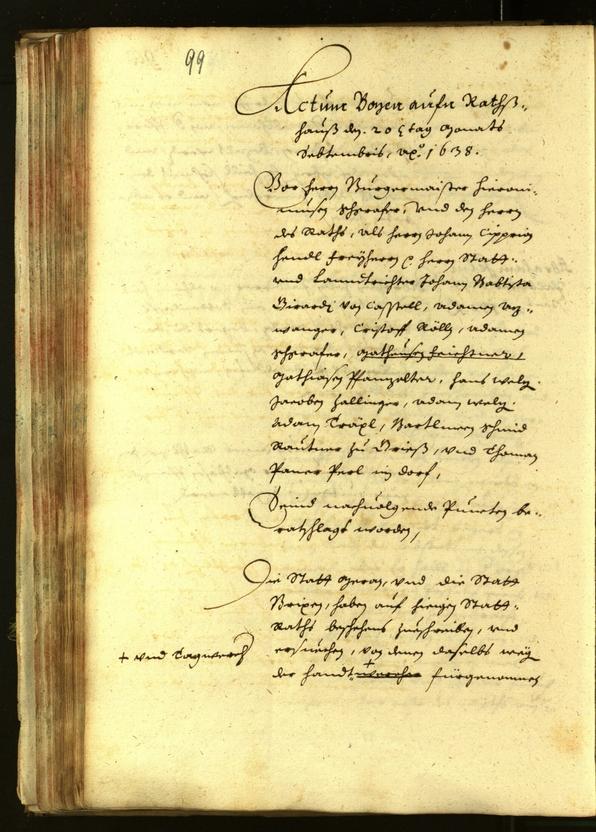 99
Actum Bozen aufn Rathß-
hauß den 20 tag Monats
Septembris, Ao. 1638.
Vor herrn Burgermaister Hieroni-
musen Schrafer, und den herrn
des Raths, als herrn Johann Cipprian
hendl Freyherrn herrn Statt-
und Lanndtrichter Johann Babtista
Girardi von Casstell, Adamen
wanger, Cristoff Röllh, Adamen
Schrafer, Mathäusen Feichtner,
Mathiasen Pfanzelter, hans Welz
Jacoben Zallinger, Adam Welz
Adam Träxl, Bartlmeen Schmid
Rautner zu Grieß, und Thoman
Paur Perl im dorf,
Seind nachvolgende Puncten be-
ratschlagt worden,
Die Statt Meran, und die Statt
Brixen, haben auf hieigen Statt-
Raths beschehens zueschreiben, und
ersuechen, von denen daselbs
+ und Tagwerch
der handt + werher fürgenommen